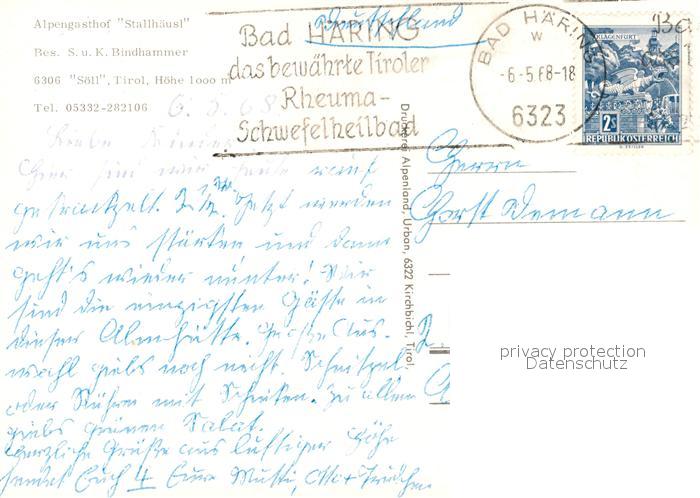 Alpengasthof "Stallhäusl"
Bes. S. u. K. Bindhammer
6306 "Söll", Tirol, Höhe 1000 m
Tel. 05332-282106
Deutschland
Bad HÄRING
das bewährte Tiroler
Rheuma-
Schwefelheilbad
BAD HÄRING
w
-6-5.68-18
6323
KLAGENFURT
2S
REPUBLIK ÖSTERREICH
Druckerei Alpenland, Urban, 6322 Kirchbichl, Tirol,
6.5.68
Liebe Kinder
Hier sind wir heute rauf
gekraxelt. Jetzt werden
wir uns stärken und dann
geht's wieder runter! Wir
sind die einzigsten Gäste in
dieser Almhütte. Große Aus-
wahl giebs noch nicht. Schnitzel
oder Rührei mit Schinken. Zu allem
giebs grünen Salat.
Herzliche Grüße aus luftiger Höhe
sendet Euch 4 Eure Mutti,
Herrn
Horst Demann
privacy protection
Datenschutz